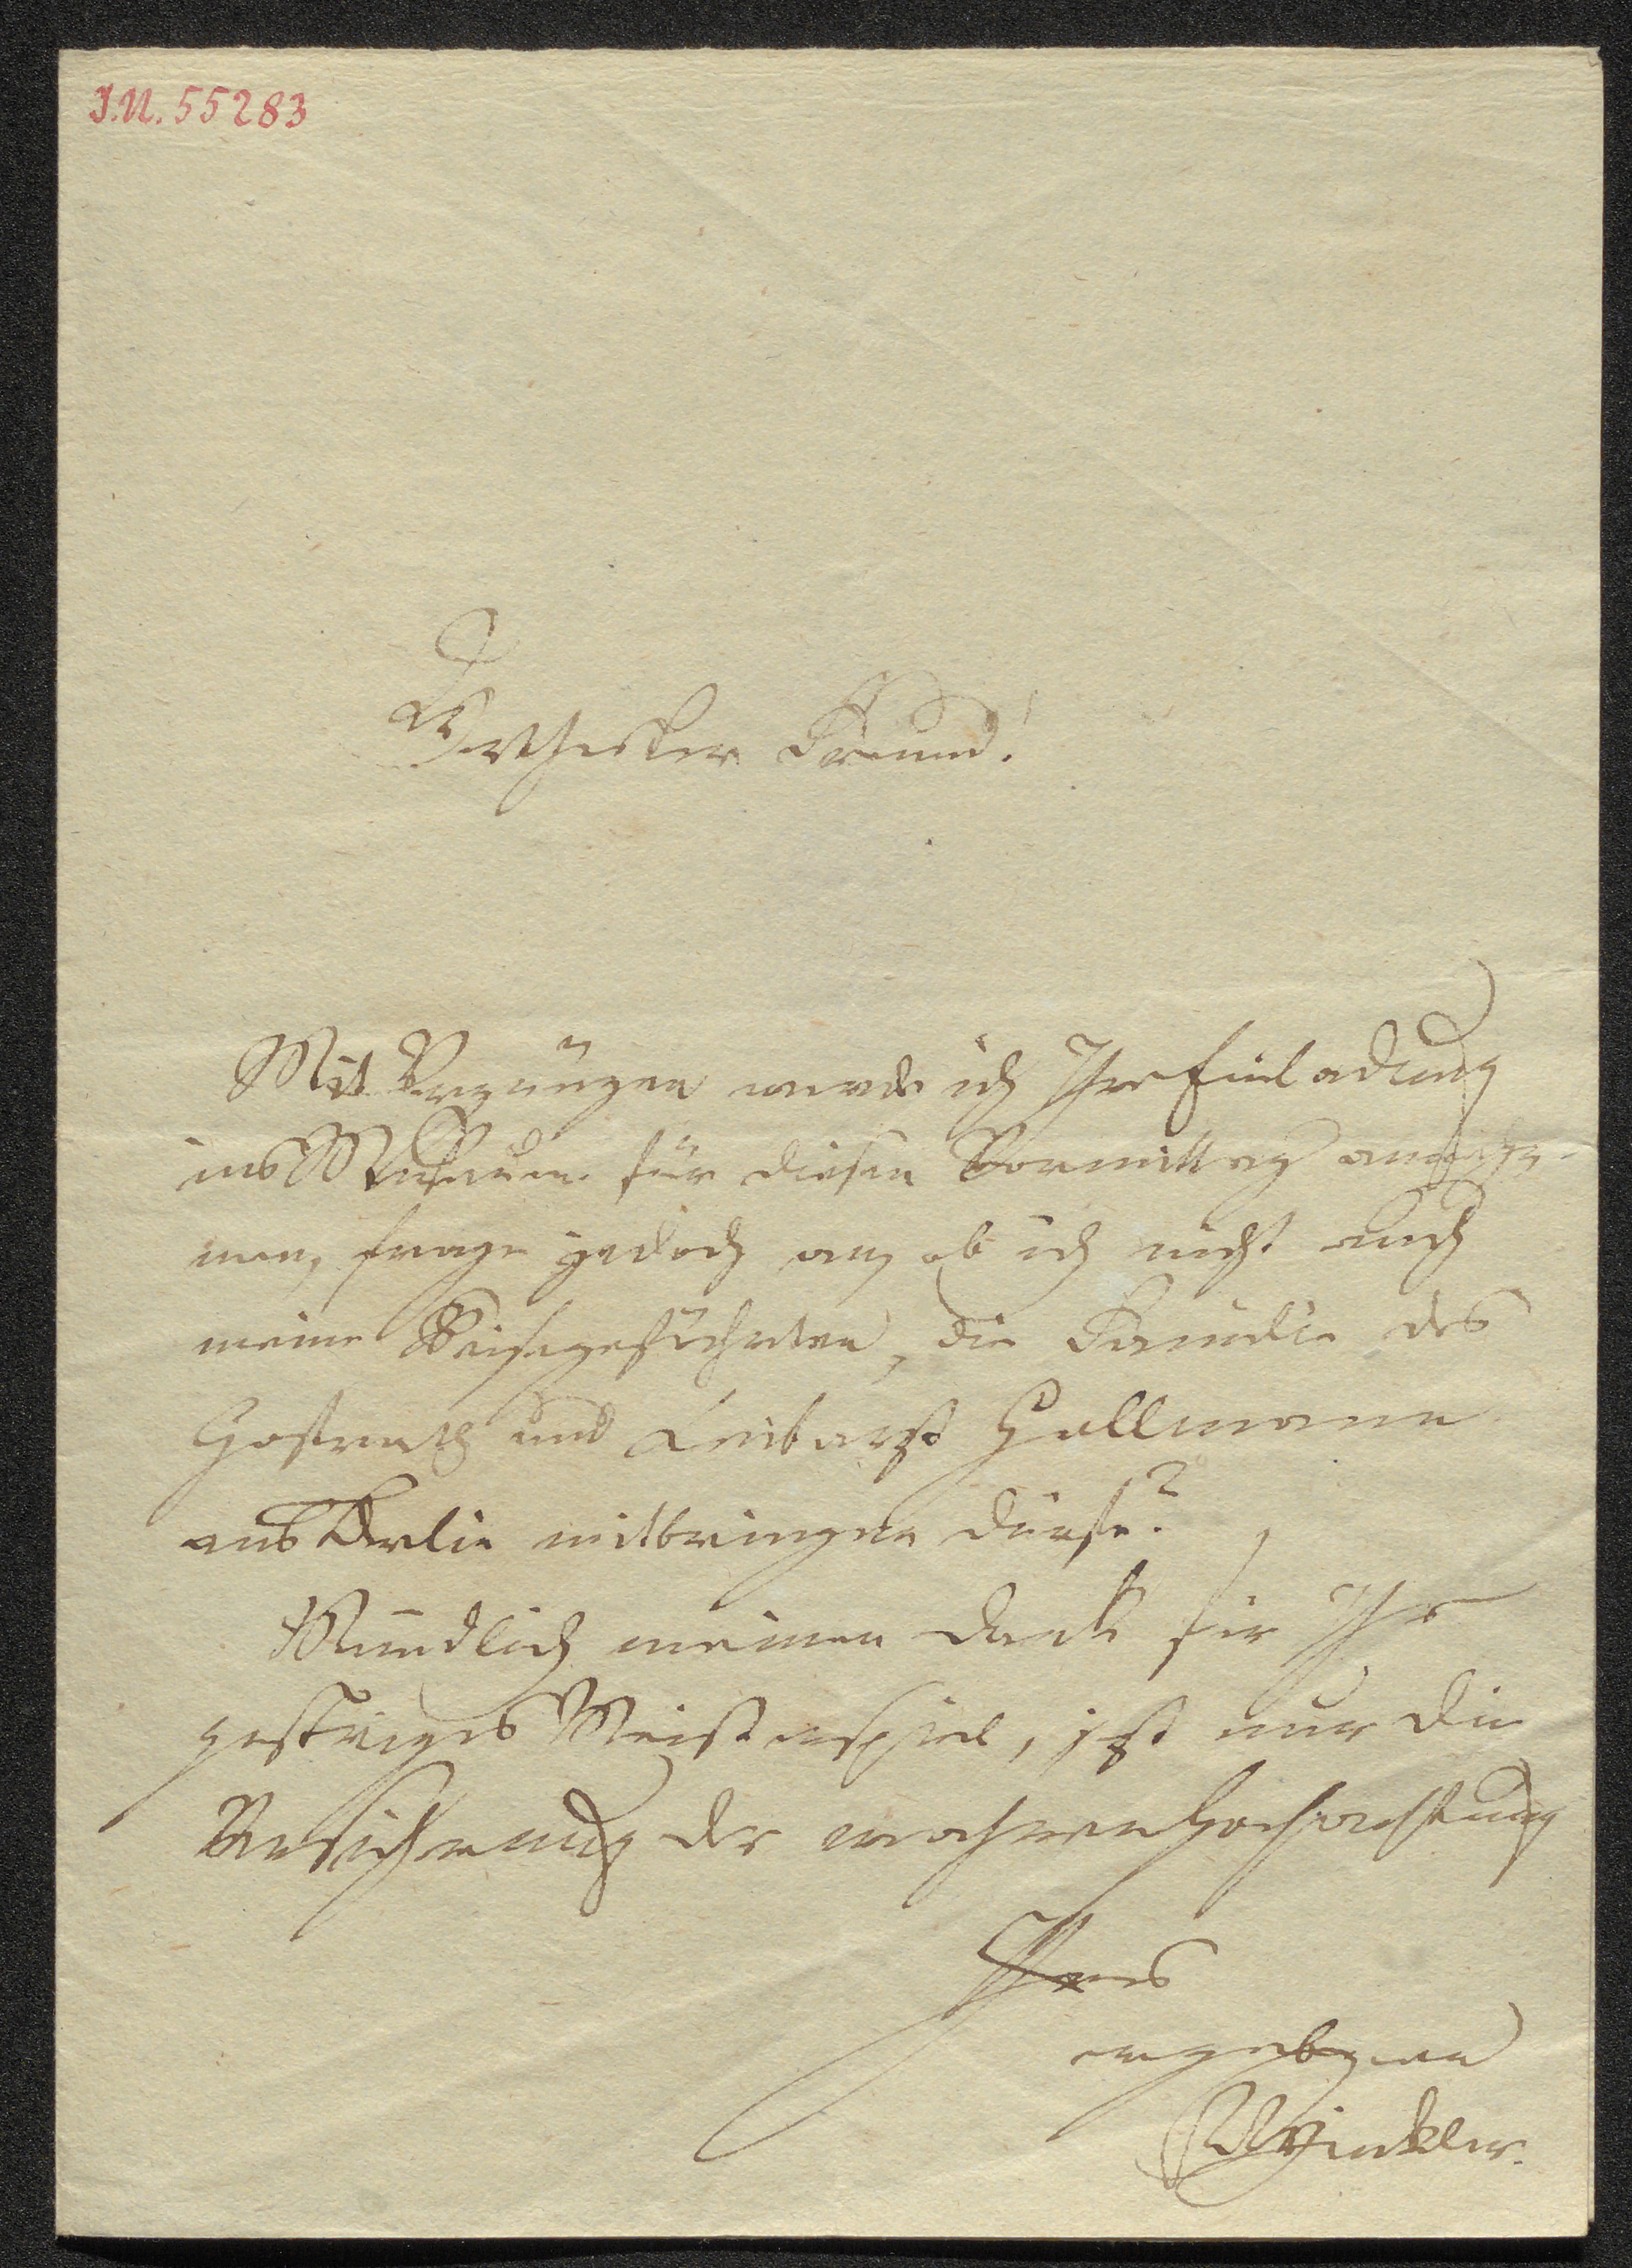 I.N. 55283
Verehrtester Freund!
Mit Vergnügen werde ich Ihre Einladung
ins Museum für diesen Vormittag anneh-
men, frage jedoch an, ob ich nicht auch
meine Reisegefährten, die Familie des
Hofrath und Leibarzt Hellmann
aus Berlin mitbringen dürfe?
Mündlich meinen Dank für Ihr
gestriges Meisterspiel, jetzt nur die
Versicherung der wahren Hochachtung
Ihres
ergebenen
Winkler.